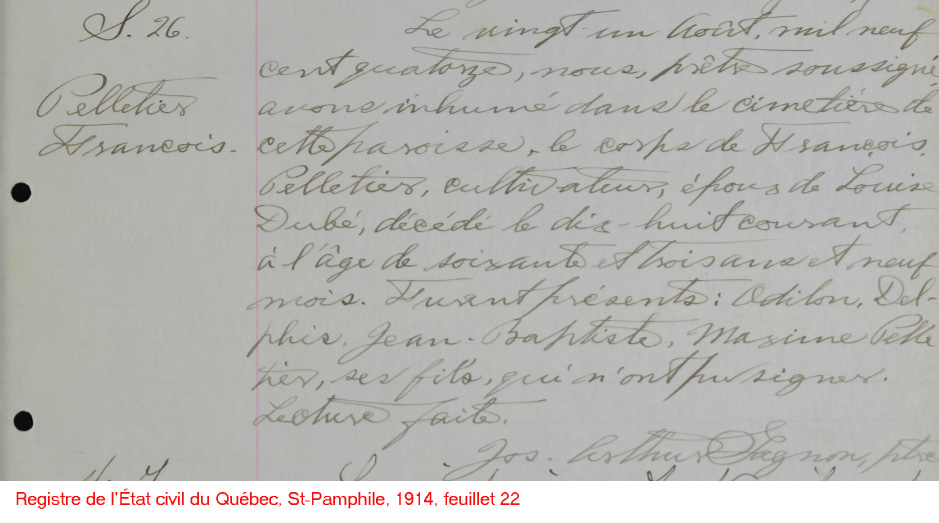 S. 26.
Pelletier
François.
Le vingt-un Août, mil neuf
cent quatorze, nous, prêtre soussigné,
avons inhumé dans le cimetière de
cette paroisse, le corps de François
Pelletier, cultivateur, époux de Louise
Dubé, décédé le dix-huit courant,
à l'âge de soixante et trois ans et neuf
mois. Furent présents: Odilon, Del-
phis, Jean-Baptiste, Maxime Pelle
tier, ses fils, qui n'ont pu signer.
Lecture faite.
Jos. Arthur Gagnon, ptre
Registre de l'État civil du Québec, St-Pamphile, 1914, feuillet 22